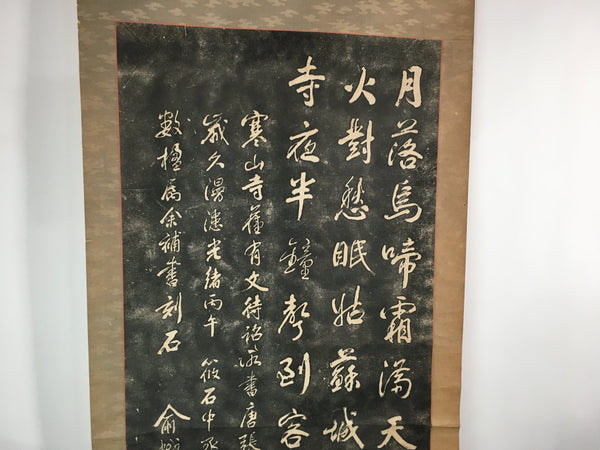 月落烏啼霜滿天
火對愁眠姑蘇城
寺夜半鐘聲到客
寒山寺舊有文待詔所書唐張
歲久漫漶光緒丙午 筱石中丞
數楹屬余補書刻石 俞樾